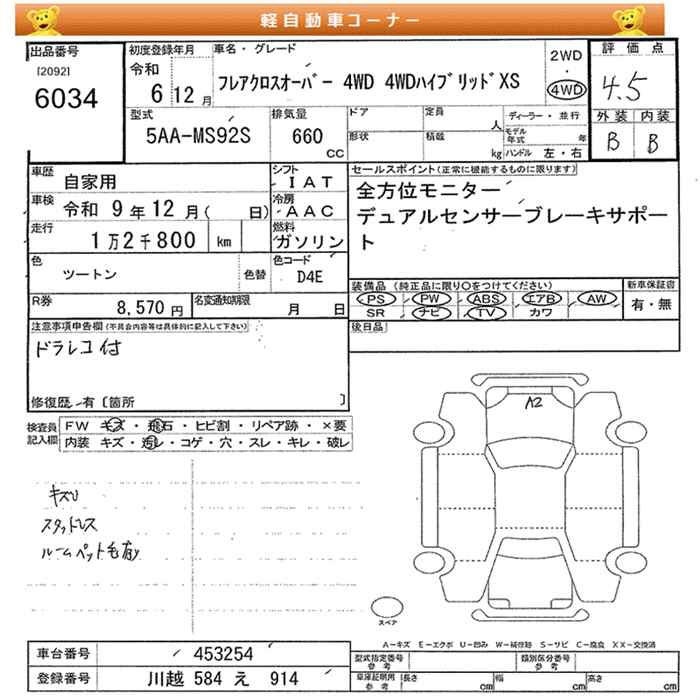 軽自動車コーナー
出品番号 初度登録年月 車名・グレード 2WD 評価点
[2092] 令和 ・ 4.5
6034 6 12月 フレアクロスオーバー 4WD 4WDハイブリッドXS 4WD
型式 排気量 ドア 定員 人 ディーラー・並行 外装 内装
5AA-MS92S 660 CC 形状 積載 kg モデル年式 年 B B
ハンドル 左・右
車歴 自家用 シフト IAT セールスポイント(正常に機能するものに限ります)
車検 令和 9年12月( 日) 冷房 AAC 全方位モニター
走行 1万2千800 km 燃料 ガソリン デュアルセンサーブレーキサポー
ト
色 ツートン 色替 色コード D4E 装備品 (純正品に限り○をつけてください) 新車保証書
PS PW ABS エアB AW 有・無
R券 8,570円 名変通知期限 月 日 SR ナビ TV カワ
注意事項申告欄(不具合内容等は具体的に記入して下さい) 後日品
ドラレコ付
修復歴 有〔箇所 〕
検査員記入欄 FW キズ・飛石・ヒビ割・リペア跡・×要
内装 キズ・汚レ・コゲ・穴・スレ・キレ・破レ
A2
キズU
スタッドレス
ルームペット毛有
スペア
A-キズ E-エクボ U-凹み W-補修跡 S-サビ C-腐食 XX-交換済
車台番号 453254 型式指定番号 参考 類別区分番号 参考
登録番号 川越 584 え 914 車庫証明用 参考 長さ cm 幅 cm 高さ cm